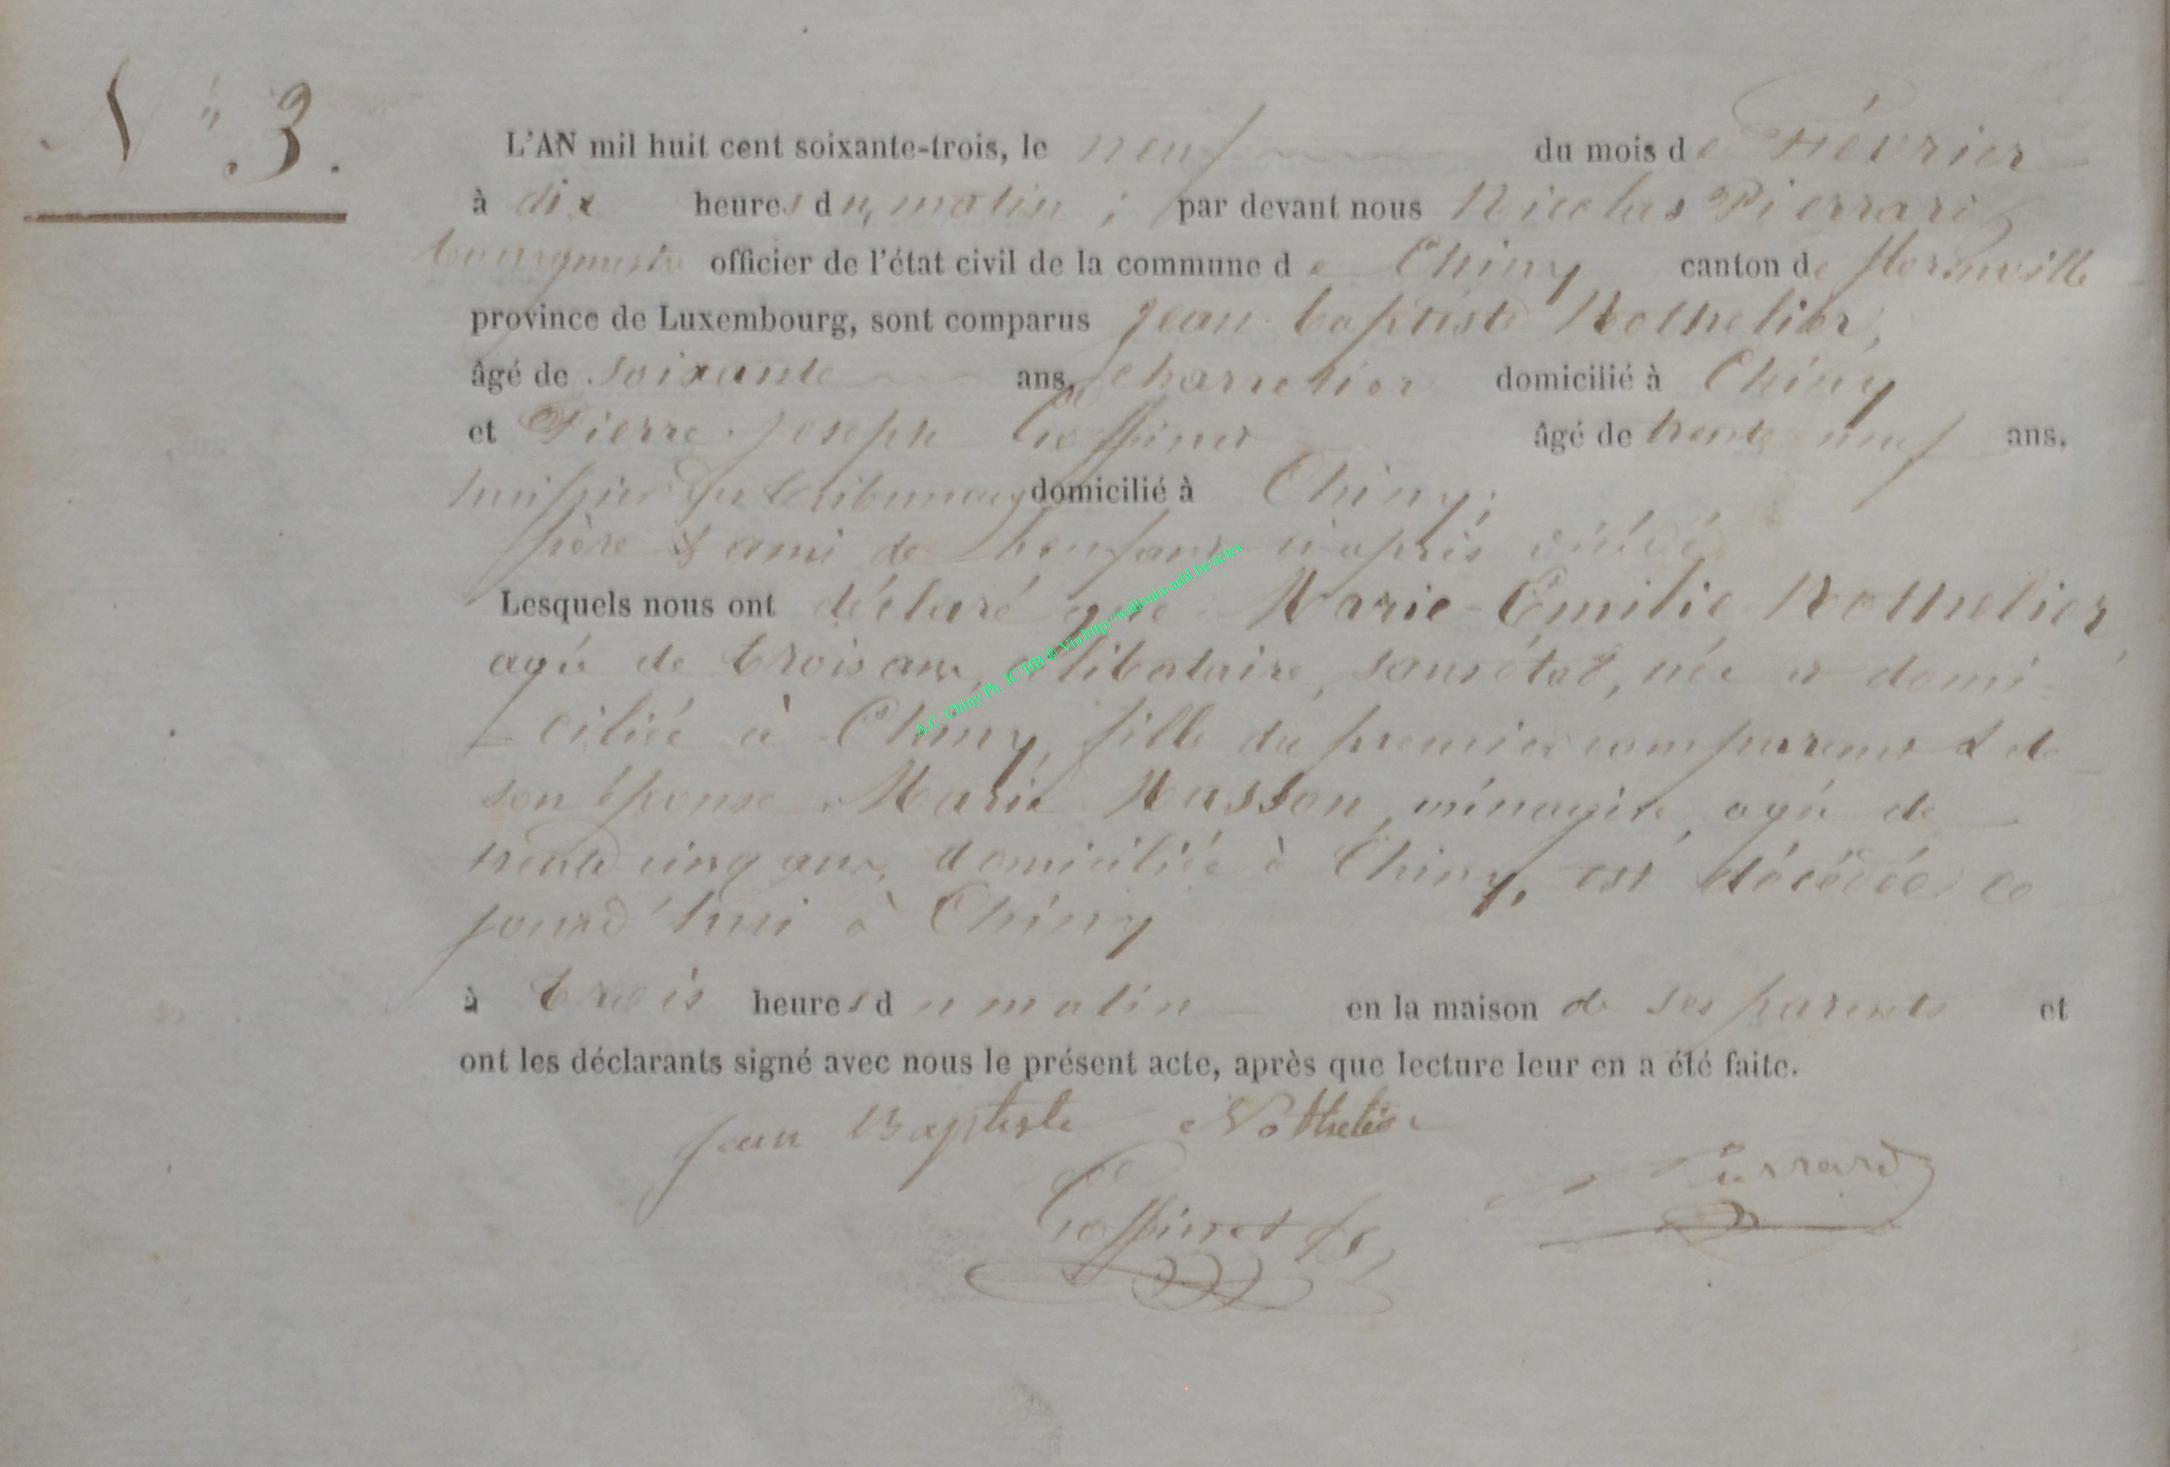 N° 3.
L'AN mil huit cent soixante-trois, le neuf du mois de Février
à dix heures du matin ; par devant nous Nicolas Pierrard
bourgmestre officier de l'état civil de la commune de Chiny canton de florenville
province de Luxembourg, sont comparus Jean-baptiste Nothelier,
âgé de soixante ans, charretier domicilié à Chiny
et Pierre-Joseph Goffinet âgé de trente-neuf ans,
huissier des tribunaux domicilié à Chiny;
père & ami de l'enfant ci-après
Lesquels nous ont déclaré que Marie-Emilie Nothelier,
agée de trois ans, célibataire, sans état, née et domi-
-ciliée à Chiny, fille du premier comparant & de
son épouse Marie Masson, ménagère, agée de
trente cinq ans, domiciliée à Chiny, est décédée ce
jourd'hui à Chiny
à trois heures du matin en la maison de ses parents et
ont les déclarants signé avec nous le présent acte, après que lecture leur en a été faite.
Jean Baptiste Nothelier
Goffinet Pierrard
A.C. Chiny Ph. JC HB @ Via http://wallonia-asbl.be/actes